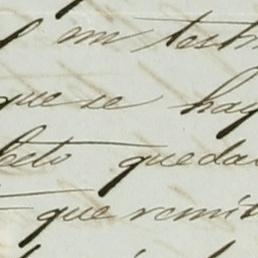 y un testi
que se hay
beto quedar
que remit